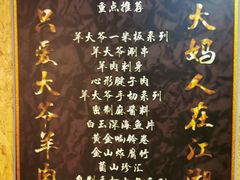 重点推荐
羊大爷一米板系列
羊大爷涮串
羊肉刺身
心形腱子肉
羊大爷手切系列
密制麻酱料
白玉深海鱼片
黄金响铃卷
金山炸腐竹
菌山珍汇
大妈人在江湖
只爱大爷羊肉